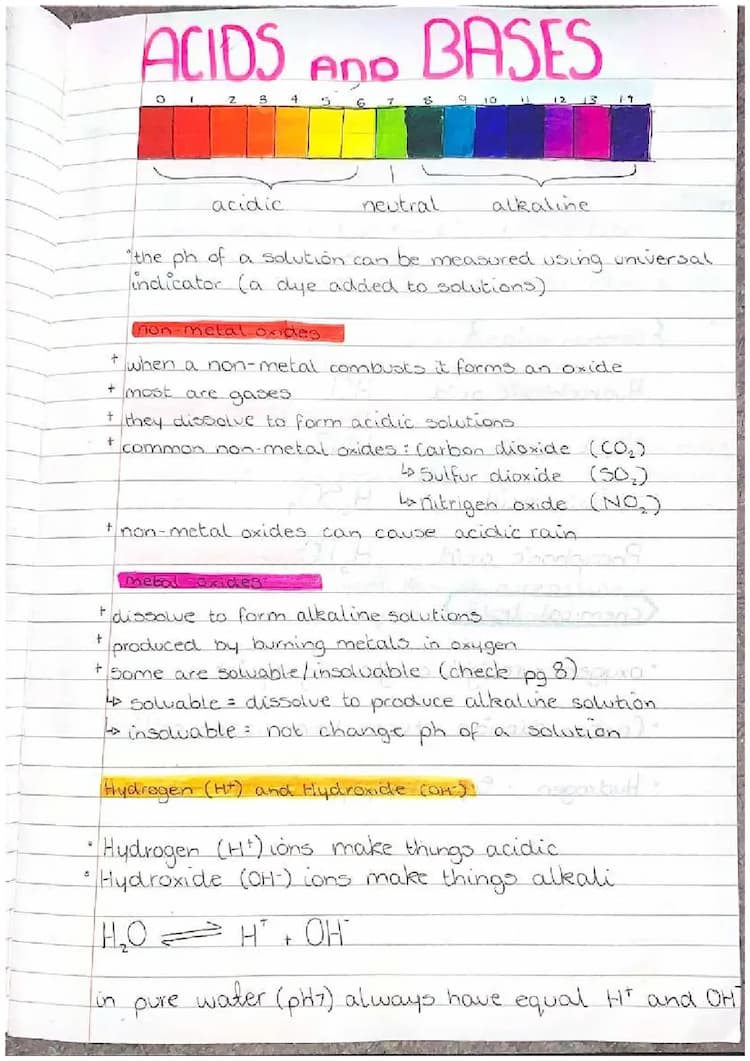 ACIDS AND BASES
0 1 2 3 4 5 6 7 8 9 10 11 12 13 14
acidic neutral alkaline
the ph of a solution can be measured using universal
indicator (a dye added to solutions)
non-metal oxides
+ when a non-metal combusts it forms an oxide
+ most are gases
+ they dissolve to form acidic solutions
+ common non-metal oxides: Carbon dioxide (CO₂)
↳ Sulfur dioxide (SO₂)
↳ nitrigen oxide (NO₂)
+ non-metal oxides can cause acidic rain
metal oxides
+ dissolve to form alkaline solutions
+ produced by burning metals in oxygen
+ some are soluable/insoluable (check pg 8)
↳ soluable = dissolve to produce alkaline solution
↳ insoluable = not change ph of a solution
Hydrogen (H⁺) and Hydroxide (OH⁻):
• Hydrogen (H⁺) ions make things acidic
• Hydroxide (OH⁻) ions make things alkali
H₂O ⇌ H⁺ + OH⁻
in pure water (pH7) always have equal H⁺ and OH⁻